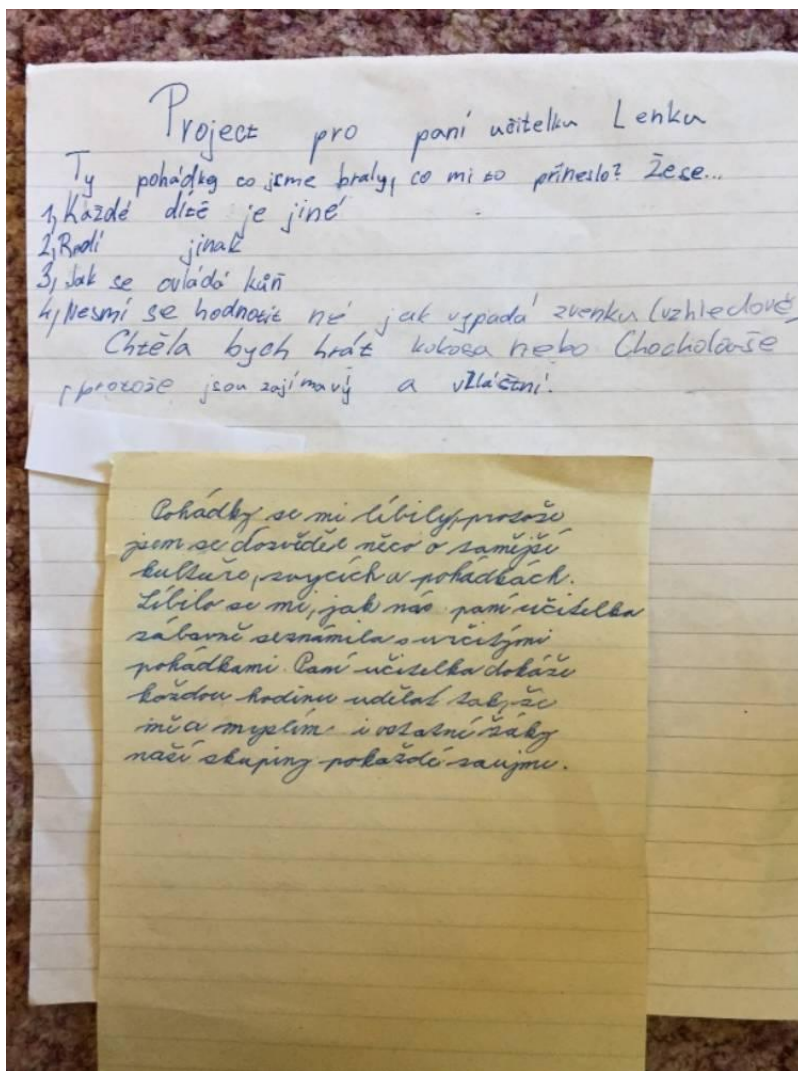 Project pro paní učitelku Lenku
Ty pohádky co jsme braly, co mi to přineslo? Že se...
1, Každé dítě je jiné
2, Rodí jinak
3, Jak se ovládá kůň
4, Nesmí se hodnotit né jak vypadá zvenku (vzhledově)
Chtěla bych hrát kokosa nebo Chocholouše
, protože jsou zajímavý a vzláštní.
Pohádky se mi líbily, protože
jsem se dozvěděl něco o tamější
kultuře, zvycích a pohádkách.
Líbilo se mi, jak nás paní učitelka
zábavně seznámila s určitými
pohádkami. Paní učitelka dokáže
každou hodinu udělat tak, že
mě a myslím i ostatní žáky
naší skupiny pokaždé zaujme.